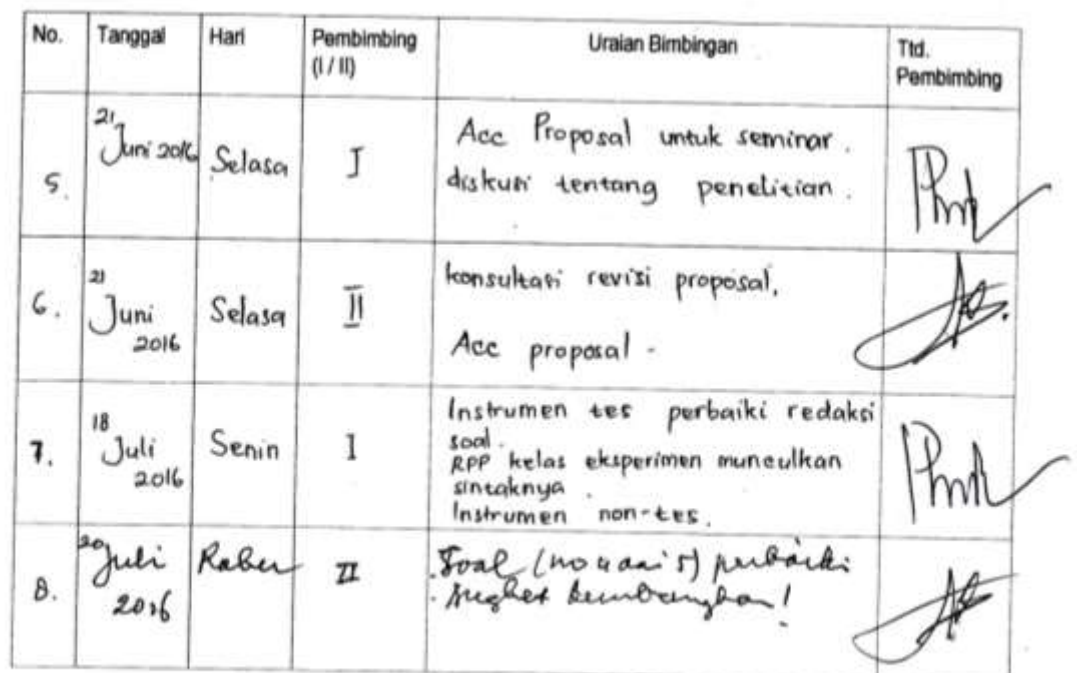 No. Tanggal Hari Pembimbing (I / II) Uraian Bimbingan Ttd. Pembimbing
5. 21 Juni 2016 Selasa I Acc Proposal untuk seminar.
diskusi tentang penelitian.
6. 21 Juni 2016 Selasa II konsultasi revisi proposal,
Acc proposal -
7. 18 Juli 2016 Senin I Instrumen tes perbaiki redaksi
soal.
RPP kelas eksperimen munculkan
sintaknya.
Instrumen non-tes.
8. 20 Juli 2016 Rabu II Soal (no 4 dan 5) perbaiki
kembangkan!